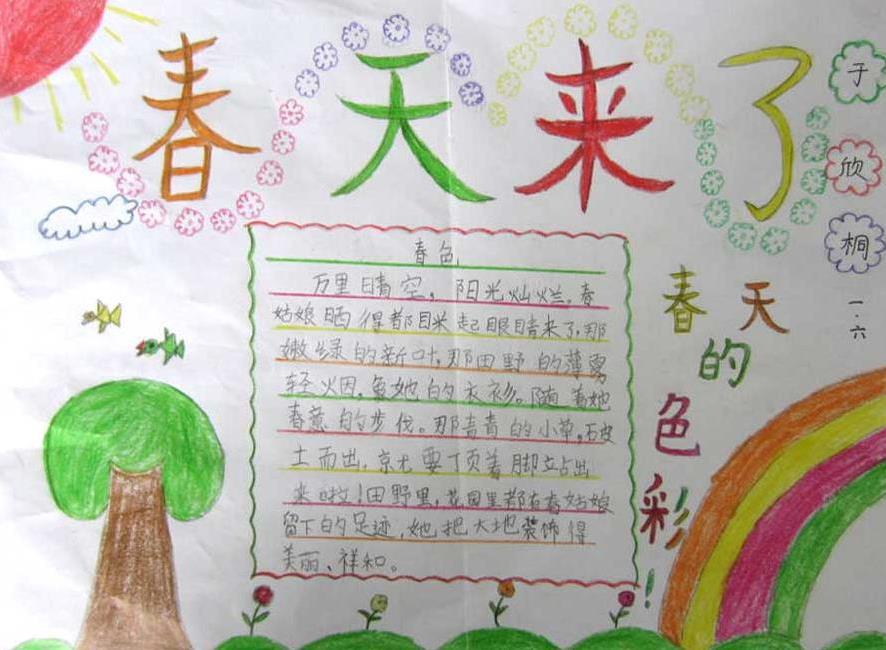 春天来了
于欣桐
一.六
春天的色彩!
春色
万里晴空,阳光灿烂。春
姑娘晒得都眯起眼睛来了,那
嫩绿的新叶,那田野的薄雾
轻烟,象她的衣衫。随着她
春意的步伐。那青青的小草,破
土而出,京尤要顶着脚立占出
来啦!田野里,花园里都有春姑娘
留下的足迹,她把大地装饰得
美丽、祥和。